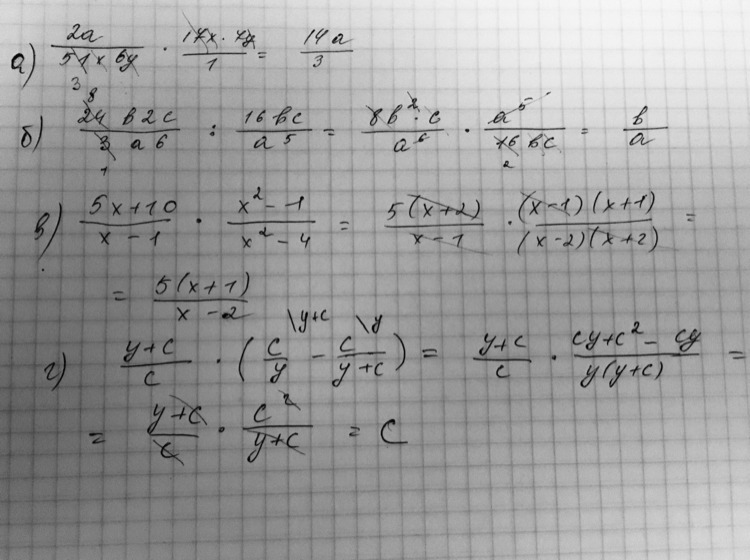 а) 2a / 51x 6y · 17x · 7y / 1 = 14a / 3
3
8
б) 24 b 2c / 3 a 6 : 16 bc / a⁵ = 8b² · c / a⁶ · a⁵ / 16 bc = b / a
1 2
в) 5x+10 / x-1 · x²-1 / x²-4 = 5(x+2) / x-1 · (x-1)(x+1) / (x-2)(x+2) =
= 5(x+1) / x-2
\y+c \y
г) y+c / c · (c / y - c / y+c) = y+c / c · cy+c²-cy / y(y+c) =
= y+c / c · c² / y+c = c